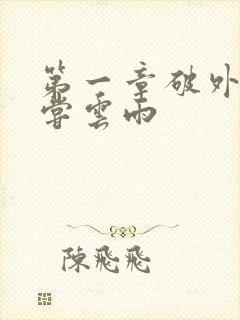 第一章破外
嘗雲雨
陳飛飛